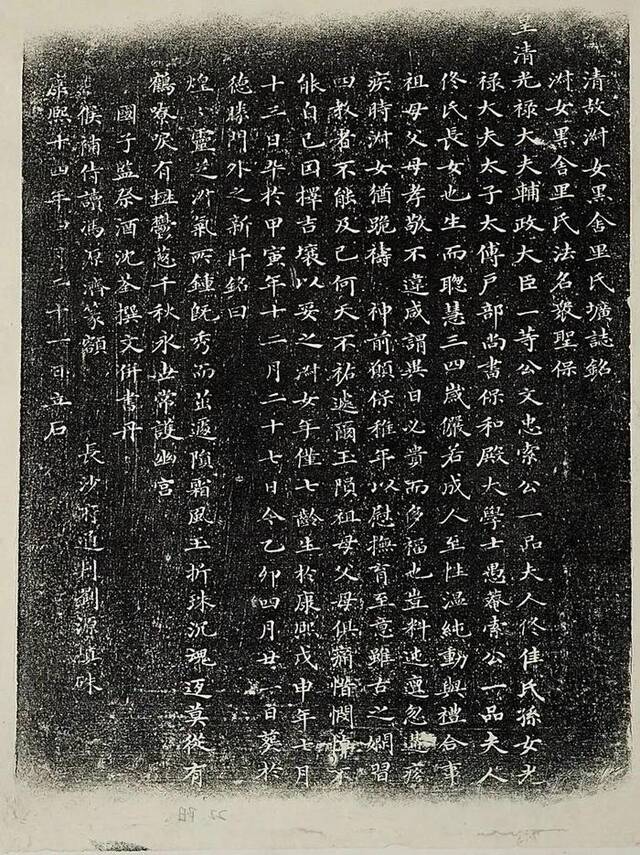 清故淑女黑舍里氏壙誌銘
淑女黑舍里氏法名衆聖保
皇清光祿大夫輔政大臣一等公文忠索公一品夫人佟佳氏孫女光
祿大夫太子太傅戶部尚書保和殿大學士愚菴索公一品夫人
佟氏長女也生而聰慧三四歲儼若成人至性溫純動與禮合事
祖母父母孝敬不違咸謂異日必貴而多福也豈料迍邅忽遘痘
疾時淑女猶跪禱 神前願保稚年以慰撫育至意雖古之嫻習
四教者不能及已何天不祐遽爾玉隕祖母父母俱痛惜憫悼不
能自已因擇吉壤以妥之淑女年僅七齡生於康熙戊申年七月
十三日卒於甲寅年十二月二十七日今乙卯四月廿一日葬於
德勝門外之新阡銘曰
煌〻靈芝淑氣所鍾既秀而茁遽隕霜風玉折珠沉魂返莫從有
鶴有鬱葱千秋永世常護幽宮
國子監祭酒沈荃撰文併書丹
候補侍讀馮源濟篆額 長沙府通判劉源填硃
康熙十四年四月二十一日立石